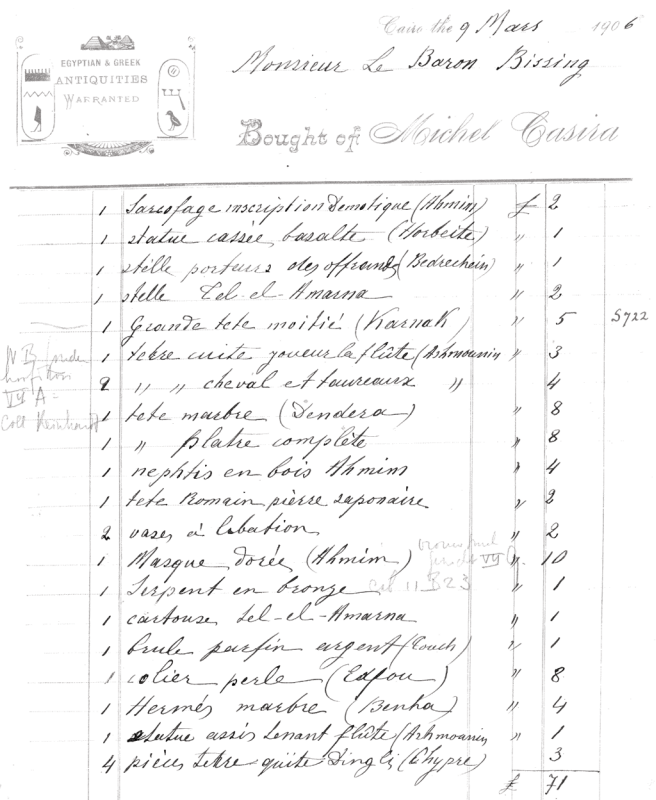 Cairo the 9 Mars 1906
EGYPTIAN & GREEK
ANTIQUITIES
WARRANTED
Monsieur Le Baron Bissing
Bought of Michel Casira
1 Sarcofage inscription Demotique (Ahmim) £ 2
1 statue cassée basalte (Horbeite) " 1
1 stelle porteurs des offrands (Bedrechein) " 1
1 stelle Tel-el-Amarna " 2
1 Grande tete moitié (Karnak) " 5 S722
1 tekre cuite joueur la flûte (Ashmounin " 3
2 " " cheval et taureaux " 4
1 tete marbre (Dendera) " 8
1 " platre complète " 8
1 nephtis en bois Ahmim " 4
1 tete Romain pierre saponaire " 2
2 vases à libation " 2
1 Masque dorée (Ahmim) " 10
1 Serpent en bronze " 1
1 cartouse Tel-el-Amarna " 1
1 brule parfin argent (Touch) " 1
1 colier perle (Edfou) " 8
1 Hermés marbre (Benha) " 4
1 statue assis tenant flûte (Ashmounin " 1
4 piéces tekre quite Dingli (Chypre) 3
£ 71
N B
VII A =
Coll Reinhardt